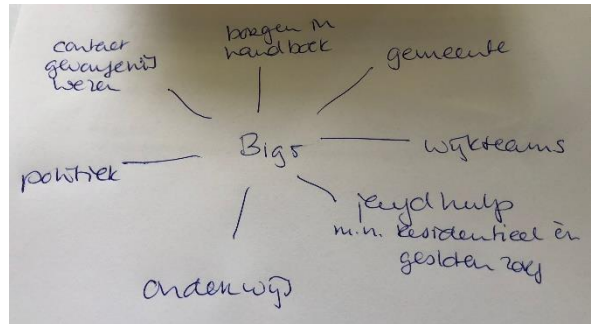 contact
gevangenis
wezen
borgen in
handboek
gemeente
Bigs
wijkteams
politiek
jeugdhulp
m.n. residentieel èn
gesloten zorg
onderwijs